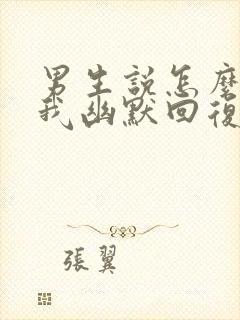 男生說怎麼
我幽默回復
張翼